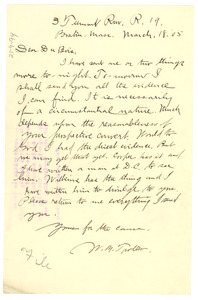 3 Tremont Row, R. 19,
Boston, Mass. March, 18, '05
Dear Du Bois,
I have sent one or two things
more to-night. To-morrow I
shall send you all the evidence
I can find. It is necessarily
of a circumstantial nature. Much
depends upon the reasonableness of
your prospective convert. Would to
God I had the direct evidence. But
we may get that yet. Cooper has it and
I have written a man at D.C. to see
him. Wilkins has the thing and I
have written him to divulge to you
Please return to me everything I send
you.
Yours for the cause,
W. M. Trotter
File